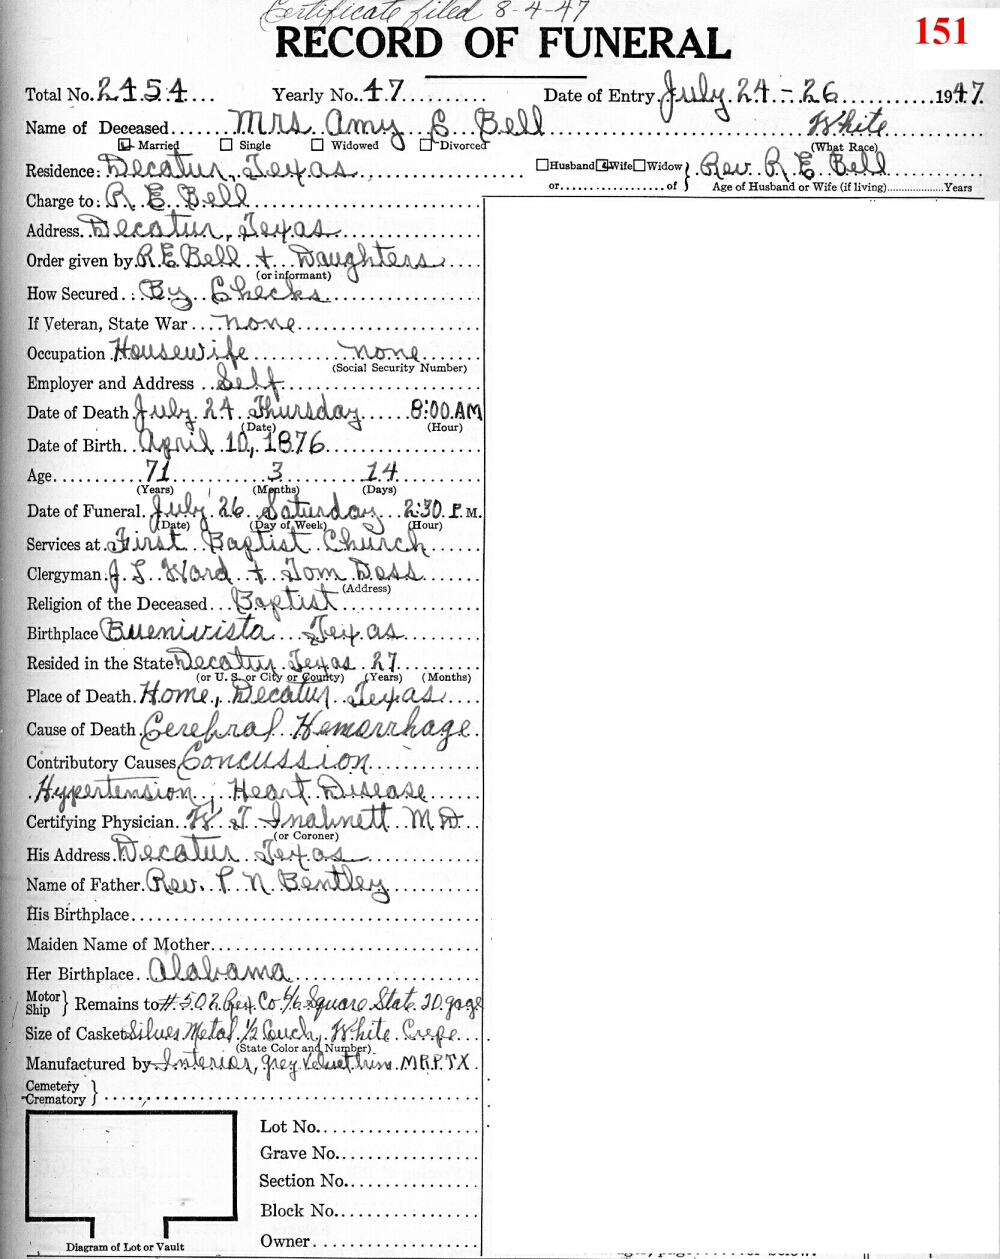 Certificate filed 8-4-47
151
RECORD OF FUNERAL
Total No. 2454 Yearly No. 47 Date of Entry July 24-26 1947
Name of Deceased Mrs Amy E Bell White
Married Single Widowed Divorced (What Race)
Residence: Decatur, Texas Husband Wife Widow } Rev. R E Bell
or of Age of Husband or Wife (if living) Years
Charge to: R E Bell
Address. Decatur, Texas
Order given by R.E. Bell + Daughters
(or informant)
How Secured By Checks
If Veteran, State War none
Occupation Housewife none
(Social Security Number)
Employer and Address Self
Date of Death July 24 Thursday 8:00 AM
(Date) (Hour)
Date of Birth April 10, 1876
Age 71 3 14
(Years) (Months) (Days)
Date of Funeral July 26 Saturday 2:30 P.M.
(Date) (Day of Week) (Hour)
Services at First Baptist Church
Clergyman J. L Ward + Tom Doss
(Address)
Religion of the Deceased Baptist
Birthplace Buenivista Texas
Resided in the State Decatur Texas 27
(or U. S. or City or County) (Years) (Months)
Place of Death Home, Decatur Texas
Cause of Death Cerebral Hemorrhage
Contributory Causes Concussion
Hypertension, Heart Disease
Certifying Physician W T Inabnett M D
(or Coroner)
His Address Decatur Texas
Name of Father Rev. P N Bentley
His Birthplace
Maiden Name of Mother
Her Birthplace Alabama
Motor Ship } Remains to #502 Co 4/6 Square State 20 gage
Size of Casket Silver Metal 1/2 Couch, White Crepe
(State Color and Number)
Manufactured by Interior, grey velvet trim. TX
Cemetery
Crematory }
Lot No.
Grave No.
Section No.
Block No.
Owner
Diagram of Lot or Vault